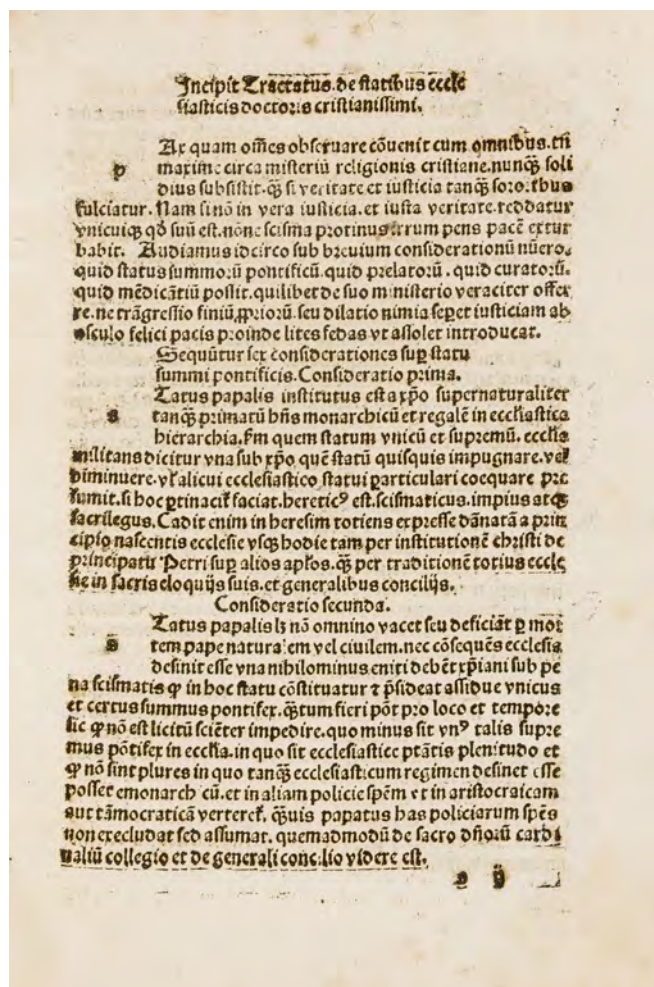 Incipit Tractatus de statibus eccle
siasticis doctoris cristianissimi.
Ax quam om̄es obseruare cōuenit cum omnibus. tn̄
p maxime circa misteriū religionis cristiane. nunqȝ soli
dius subsistit. qȝ si veritate et iusticia tanqȝ sororibus
fulciatur. Nam si nō in vera iusticia. et iusta veritate. reddatur
vnicuiqȝ qd̄ suū est. non scisma protinus pens pacē extur
babit. Audiamus idcirco sub breuium considerationū nūero.
quid status summorū pontificū. quid prelatorū. quid curatorū.
quid mēdicātiū possit. quilibet de suo ministerio veraciter offer
re. ne trāgressio finiū priorū. seu dilatio nimia seꝑet iusticiam ab
osculo felici pacis proinde lites fedas vt assolet introducat.
Sequūtur sex considerationes suꝑ statu
summi pontificis. Consideratio prima.
Tatus papalis institutus est a xp̄o supernaturaliter
s tanqȝ primatū hn̄s monarchicū et regalē in eccl̄iastica
hierarchia. s̄m quem statum vnicū et supremū. eccl̄ia
militans dicitur vna sub xp̄o quē statū quisquis impugnare. vel
diminuere. vl̓ alicui ecclesiastico statui particulari coequare pre
sumit. si hoc ꝑtinacit̓ faciat. hereticꝰ est. scismaticus. impius atqȝ
sacrilegus. Cadit enim in heresim totiens expresse dānatā a prin
cipio nascentis ecclesie vsqȝ hodie tam per institutionē christi de
principatu Petri suꝑ alios ap̄los. qȝ per traditionē totius eccle
sie in sacris eloquijs suis. et generalibus concilijs.
Consideratio secunda.
Tatus papalis lȝ nō omnino vacet seu deficiāt ꝑ mor
s tem pape naturalem vel ciuilem. nec cōsequēs ecclesia
desinit esse vna nihilominus eniti debēt xp̄iani sub pe
na scismatis ꝙ in hoc statu cōstituatur ⁊ p̄sideat assidue vnicus
et certus summus pontifex. qȝtum fieri pōt pro loco et tempore
sic ꝙ nō est licitū sciēter impedire. quo minus sit vnꝰ talis supre
mus pōtifex in eccl̄ia. in quo sit ecclesiastice ptātis plenitudo et
ꝙ nō sint plures in quo tanqȝ ecclesiasticum regimen desinet esse
posset e monarchicū. et in aliam policie sp̄em vt in aristocraticam
aut tāmocraticā verteret̓. qȝuis papatus has policiarum sp̄es
non execludat sed assumat. quemadmodū de sacro dn̄orū cardi
naliū collegio et de generali concilio videre est.